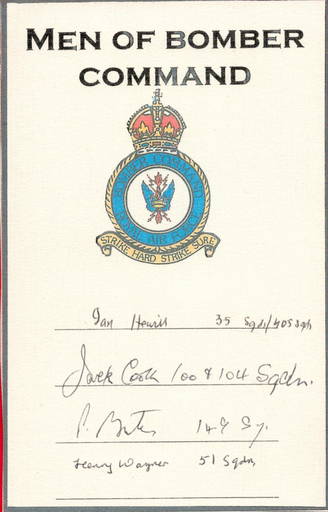 MEN OF BOMBER
COMMAND
BOMBER COMMAND
ROYAL AIR FORCE
STRIKE HARD STRIKE SURE
Ian Hewitt 35 Sqdn/405 Sqn
Jack Cook 100 & 104 Sqdn.
P. 149 Sq.
Henry Wagner 51 Sqdn